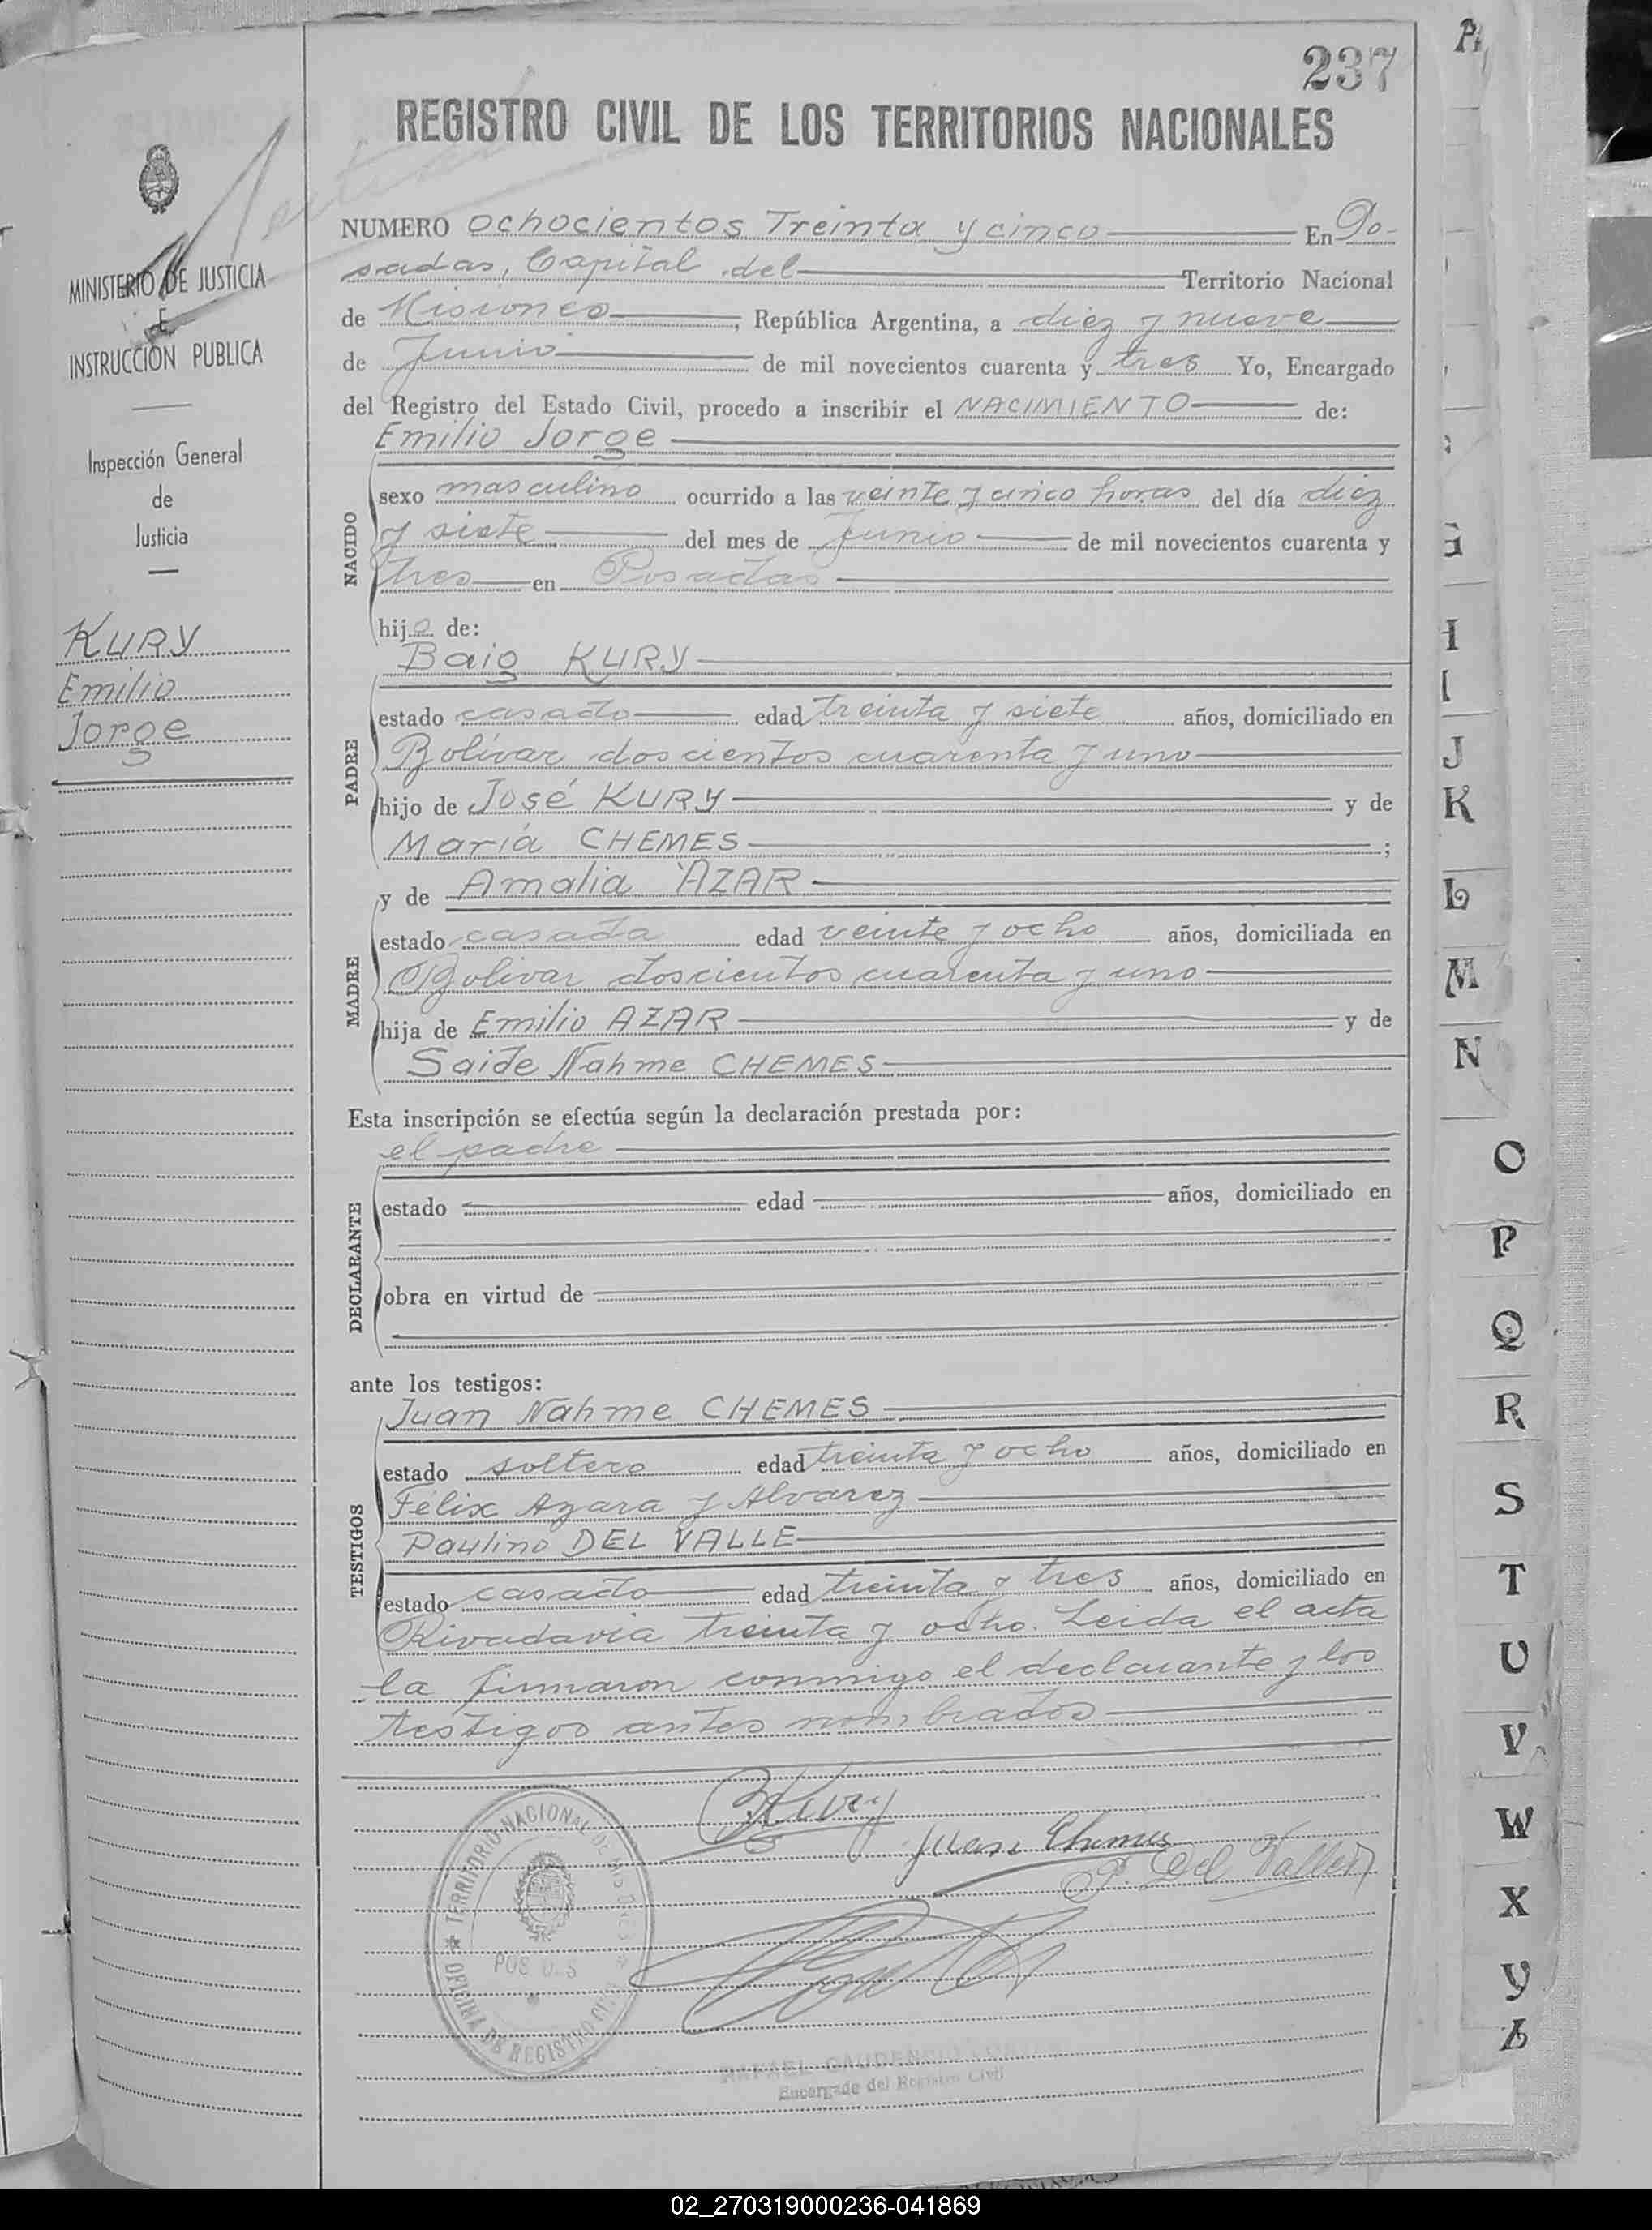 237
REGISTRO CIVIL DE LOS TERRITORIOS NACIONALES
MINISTERIO DE JUSTICIA
E
INSTRUCCIÓN PUBLICA
Inspección General
de
Justicia
KURY
Emilio
Jorge
NUMERO ochocientos Treinta y cinco En Po-
sadas, Capital del Territorio Nacional
de Misiones, República Argentina, a diez y nueve
de Junio de mil novecientos cuarenta y tres Yo, Encargado
del Registro del Estado Civil, procedo a inscribir el NACIMIENTO de:
Emilio Jorge
NACIDO
sexo masculino ocurrido a las veinte y cinco horas del día diez
y siete del mes de Junio de mil novecientos cuarenta y
tres en Posadas
hijo de:
Baig KURY
PADRE
estado casado edad treinta y siete años, domiciliado en
Bolívar doscientos cuarenta y uno
hijo de José KURY y de
María CHEMES ;
y de Amalia AZAR
MADRE
estado casada edad veinte y ocho años, domiciliada en
Bolivar doscientos cuarenta y uno
hija de Emilio AZAR y de
Saide Nahme CHEMES
Esta inscripción se efectúa según la declaración prestada por:
el padre
DECLARANTE
estado edad años, domiciliado en
obra en virtud de
ante los testigos:
Juan Nahme CHEMES
TESTIGOS
estado soltero edad treinta y ocho años, domiciliado en
Félix Azara y Alvarez
Paulino DEL VALLE
estado casado edad treinta y tres años, domiciliado en
Rivadavia treinta y ocho. Leida el acta
la firmaron conmigo el declarante y los
testigos antes nombrados
B Kury
Juan Chemes
P. Del Valle
TERRITORIO NACIONAL DE MISIONES
OFICINA DE REGISTRO CIVIL
RAFAEL GAUDENCIO
Encargado del Registro Civil
G
H
I
J
K
L
M
N
O
P
Q
R
S
T
U
V
W
X
Y
Z
02_270319000236-041869